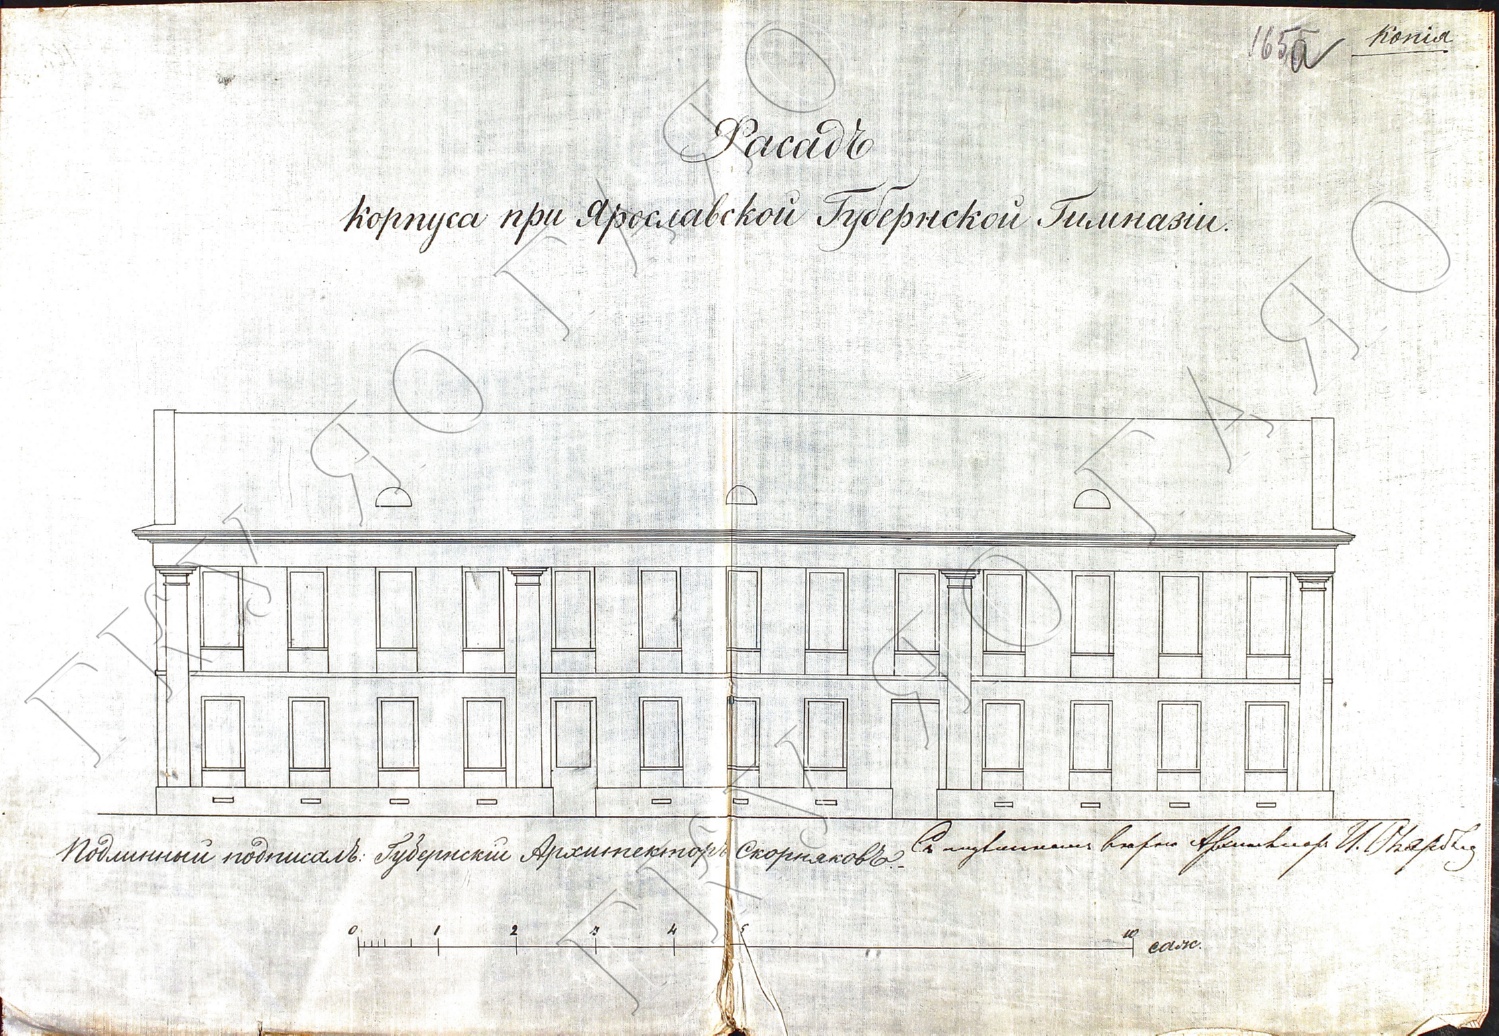 165а
Копія
Фасадъ
корпуса при Ярославской Губернской Гимназіи.
Подлинный подписалъ: Губернскій Архитекторъ Скорняковъ.
Съ подлиннымъ верно Архитекторъ И.
0 1 2 3 4 5 10 саж.
ГКУ ЯО ГАЯО
ГКУ ЯО ГАЯО